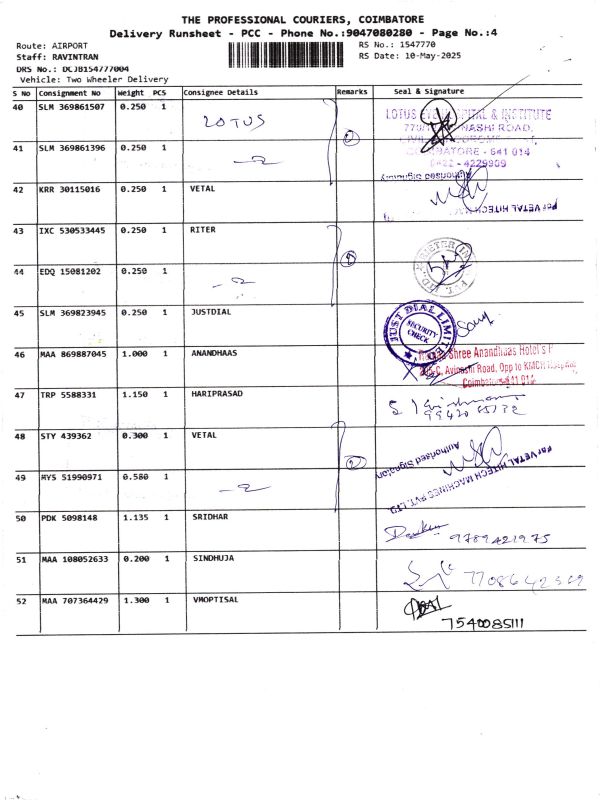 THE PROFESSIONAL COURIERS, COIMBATORE
Delivery Runsheet - PCC - Phone No.:9047080280 - Page No.:4
Route: AIRPORT RS No.: 1547770
Staff: RAVINTRAN RS Date: 10-May-2025
DRS No.: DCJB154777004
Vehicle: Two Wheeler Delivery
S No Consignment No Weight PCS Consignee Details Remarks Seal & Signature
40 SLM 369861507 0.250 1 LOTUS
LOTUS EYE HOSPITAL & INSTITUTE
ROAD,
COIMBATORE - 641 014
0422 - 4229909
41 SLM 369861396 0.250 1
Authorised Signatory
42 KRR 30115016 0.250 1 VETAL
For VETAL HITECH
43 IXC 530533445 0.250 1 RITER
44 EDQ 15081202 0.250 1
45 SLM 369823945 0.250 1 JUSTDIAL
JUST DIAL LIMITED
SECURITY
CHECK
46 MAA 869887045 1.000 1 ANANDHAAS
Shree Anandhaas Hotel's P
Avinashi Road, Opp to KMCH Hospital
Coimbatore-641 014
47 TRP 5588331 1.150 1 HARIPRASAD
48 STY 439362 0.300 1 VETAL
For VETAL HITECH MACHINES PVT. LTD
Authorised Signatory
49 MYS 51990971 0.580 1
50 PDK 5098148 1.135 1 SRIDHAR 9789421975
51 MAA 108052633 0.200 1 SINDHUJA
52 MAA 707364429 1.300 1 VMOPTISAL
7540085111